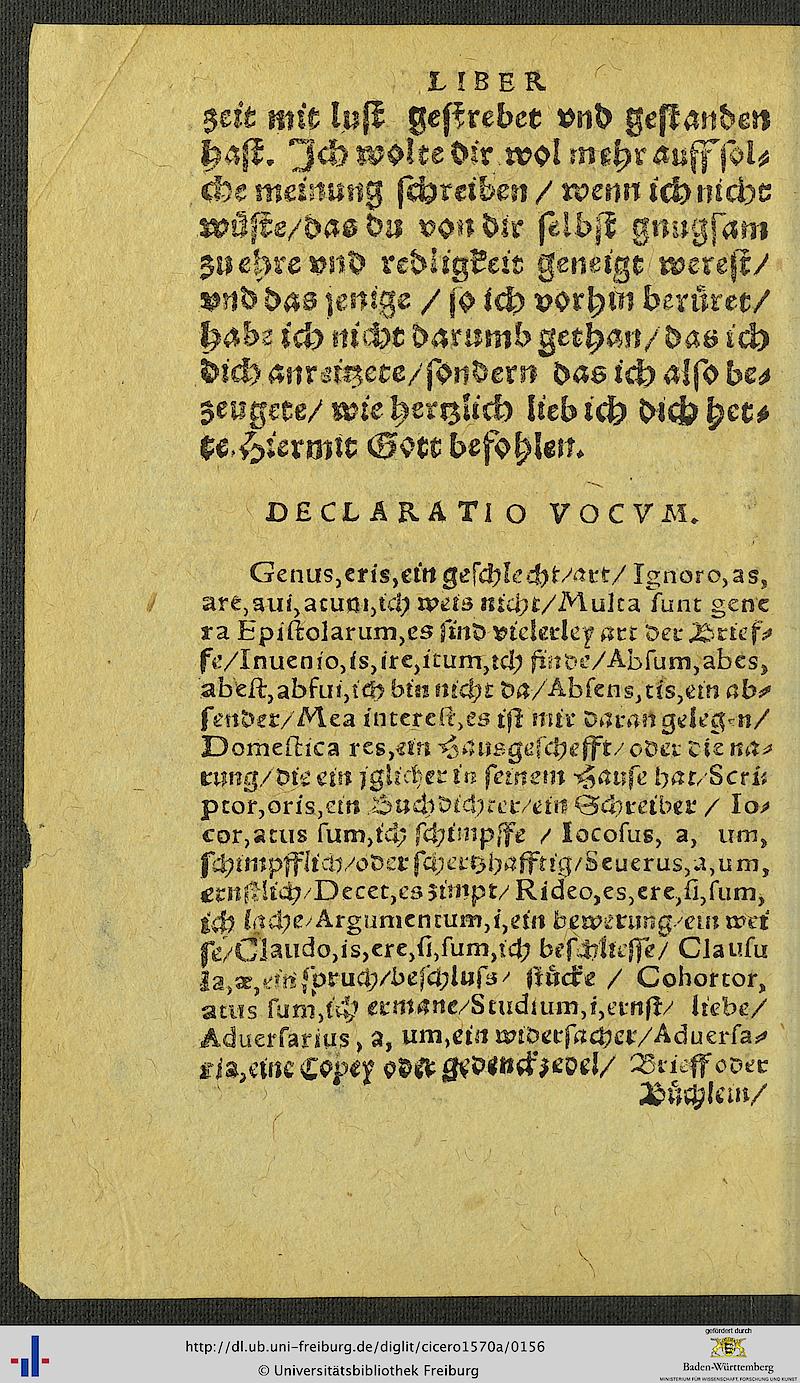 LIBER
zeit mit lust gestrebet vnd gestanden
hast. Ich wolte dir wol mehr auff sol⸗
che meinung schreiben / wenn ich nicht
wůste/das du von dir selbst gnugsam
zu ehre vnd redligkeit geneigt werest/
vnd das jenige / so ich vorhin berůret/
habe ich nicht darumb gethan/das ich
dich anreitzete/sondern das ich also be⸗
zeugete/ wie hertzlich lieb ich dich het⸗
te. Hiermit Gott befohlen.
DECLARATIO VOCVM.
Genus,eris,ein geschlecht/art/ Ignoro,as,
are,aui,atum,ich weis nicht/Multa sunt gene
ra Epistolarum,es sind vielerley art der Brief⸗
fe/Inuenio,is,ire,itum,ich finde/Absum,abes,
abest,abfui,ich bin nicht da/Absens,tis,ein ab⸗
sender/Mea interest,es ist mir daran gelegen/
Domestica res,ein Hausgeschefft/oder die na⸗
rung/die ein jglicher in seinem Hause hat/Scri⸗
ptor,oris,ein Buchdichter/ein Schreiber / Io⸗
cor,atus sum,ich schimpffe / Iocosus, a, um,
schimpfflich/oder schertzhafftig/Seuerus,a,um,
ernstlich/Decet,es zimpt/Rideo,es,ere,si,sum,
ich lache/Argumentum,i,ein bewerung/ein wei
se/Claudo,is,ere,si,sum,ich beschliesse/ Clausu
la,æ,ein spruch/beschluss/ stůcke / Cohortor,
atus sum,ich ermane/Studium,i,ernst/ liebe/
Aduersarius, a, um,ein widersacher/Aduersa⸗
ria,eine Copey oder gedenckzedel/ Brieff oder
Bůchlein/
http://dl.ub.uni-freiburg.de/diglit/cicero1570a/0156
© Universitätsbibliothek Freiburg
gefördert durch
Baden-Württemberg
MINISTERIUM FÜR WISSENSCHAFT, FORSCHUNG UND KUNST